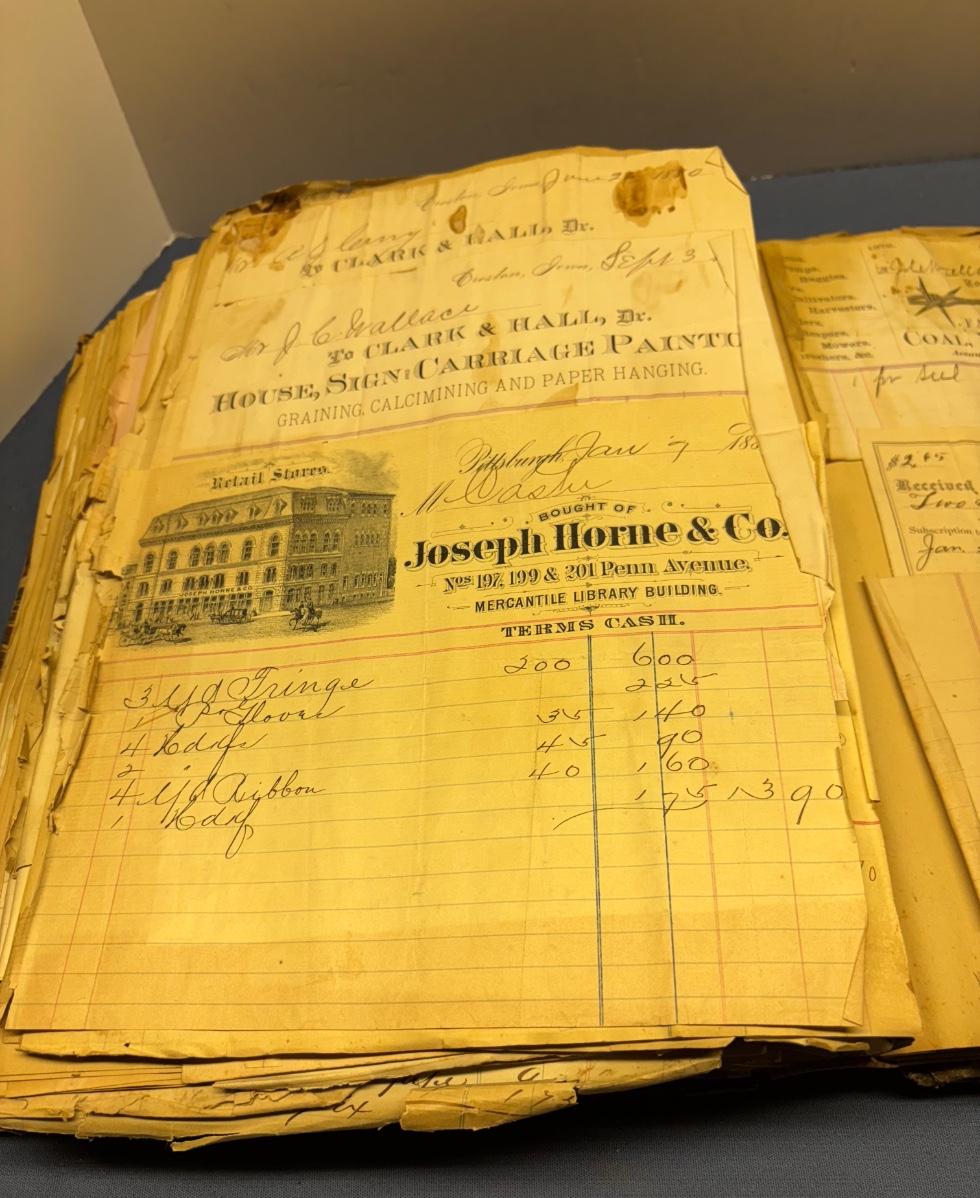 Creston, Iowa, June 2 1880
To CLARK & HALL, Dr.
Creston, Iowa, Sept 3
Mr J. C. Wallace
To CLARK & HALL, Dr.
HOUSE, SIGN & CARRIAGE PAINTI
GRAINING, CALCIMINING AND PAPER HANGING.
Retail Stores.
JOSEPH HORNE & CO
Pittsburgh, Jan 7 188
M Cash
BOUGHT OF
Joseph Horne & Co.
Nos 197, 199 & 201 Penn Avenue,
MERCANTILE LIBRARY BUILDING.
TERMS CASH.
3 Yd Fringe 200 600
1 Pr Gloves 225
4 Hdkfs 35 140
2 " 45 90
4 Yd Ribbon 40 160
1 Hdkf 175 13 90
Buggies,
Cultivators,
Harvesters,
Reapers,
Mowers,
&c.
COAL,
1
$2.65
Received
Two
Subscription
Jan.